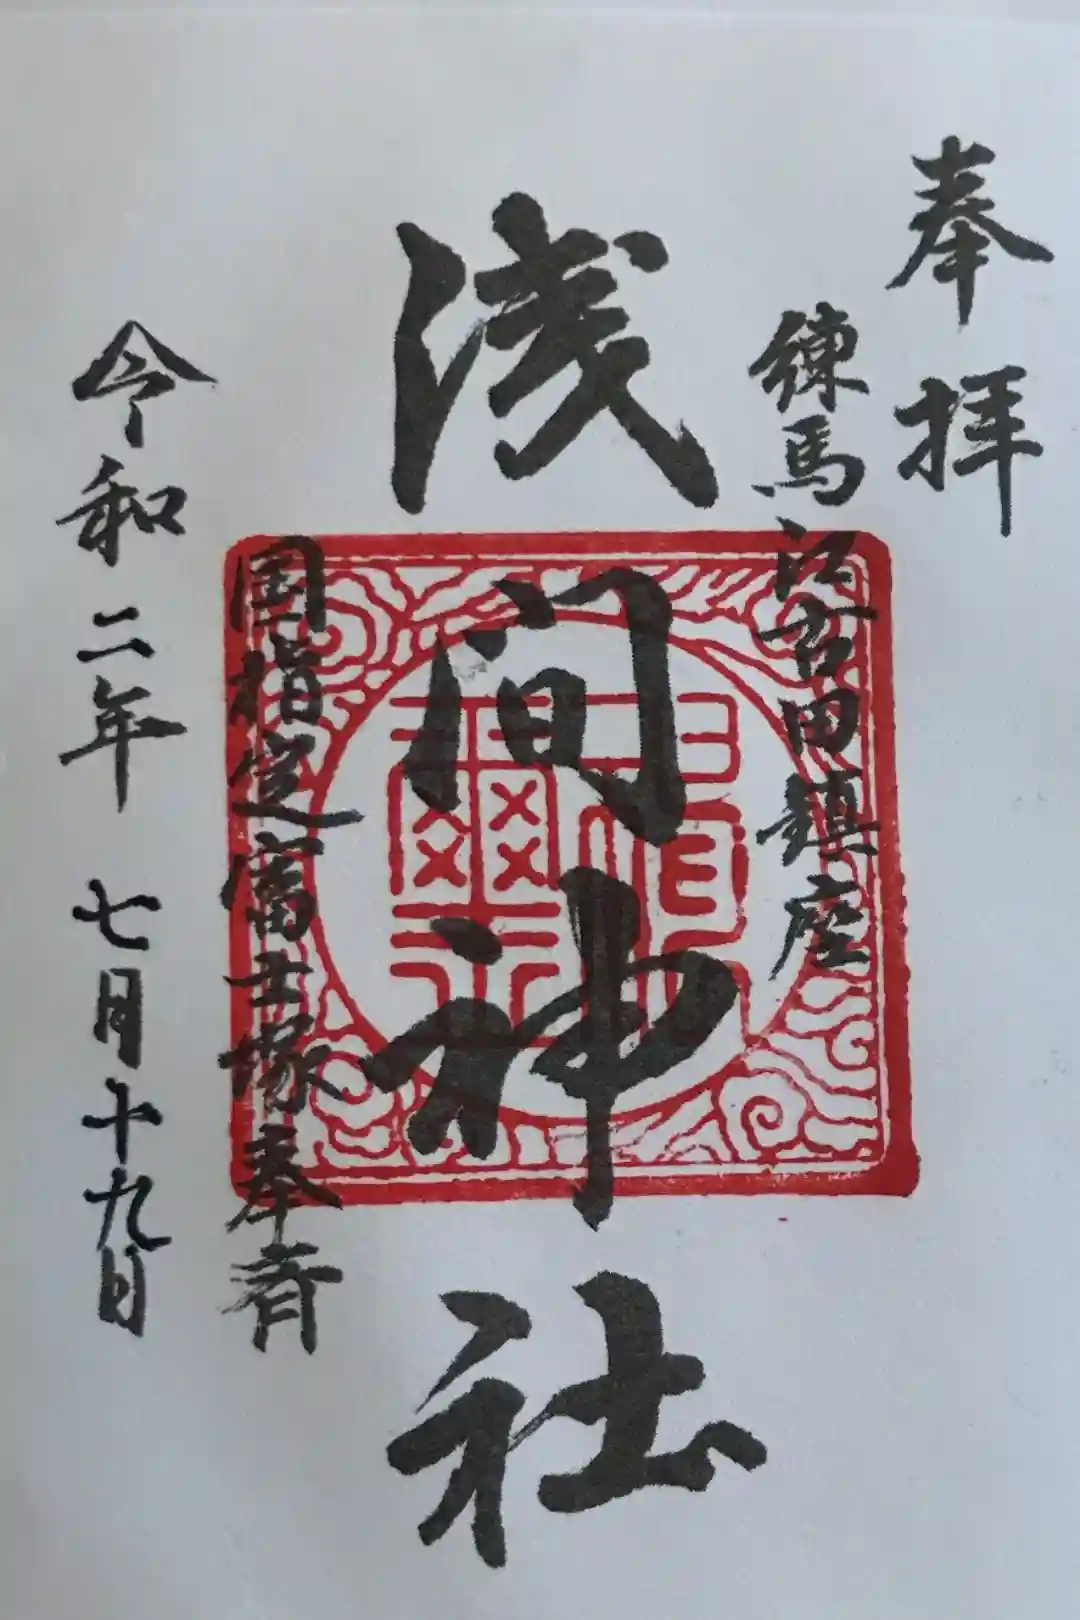 奉拝
練馬江古田鎮座
浅間神社
国指定富士塚奉斎
令和二年 七月十九日